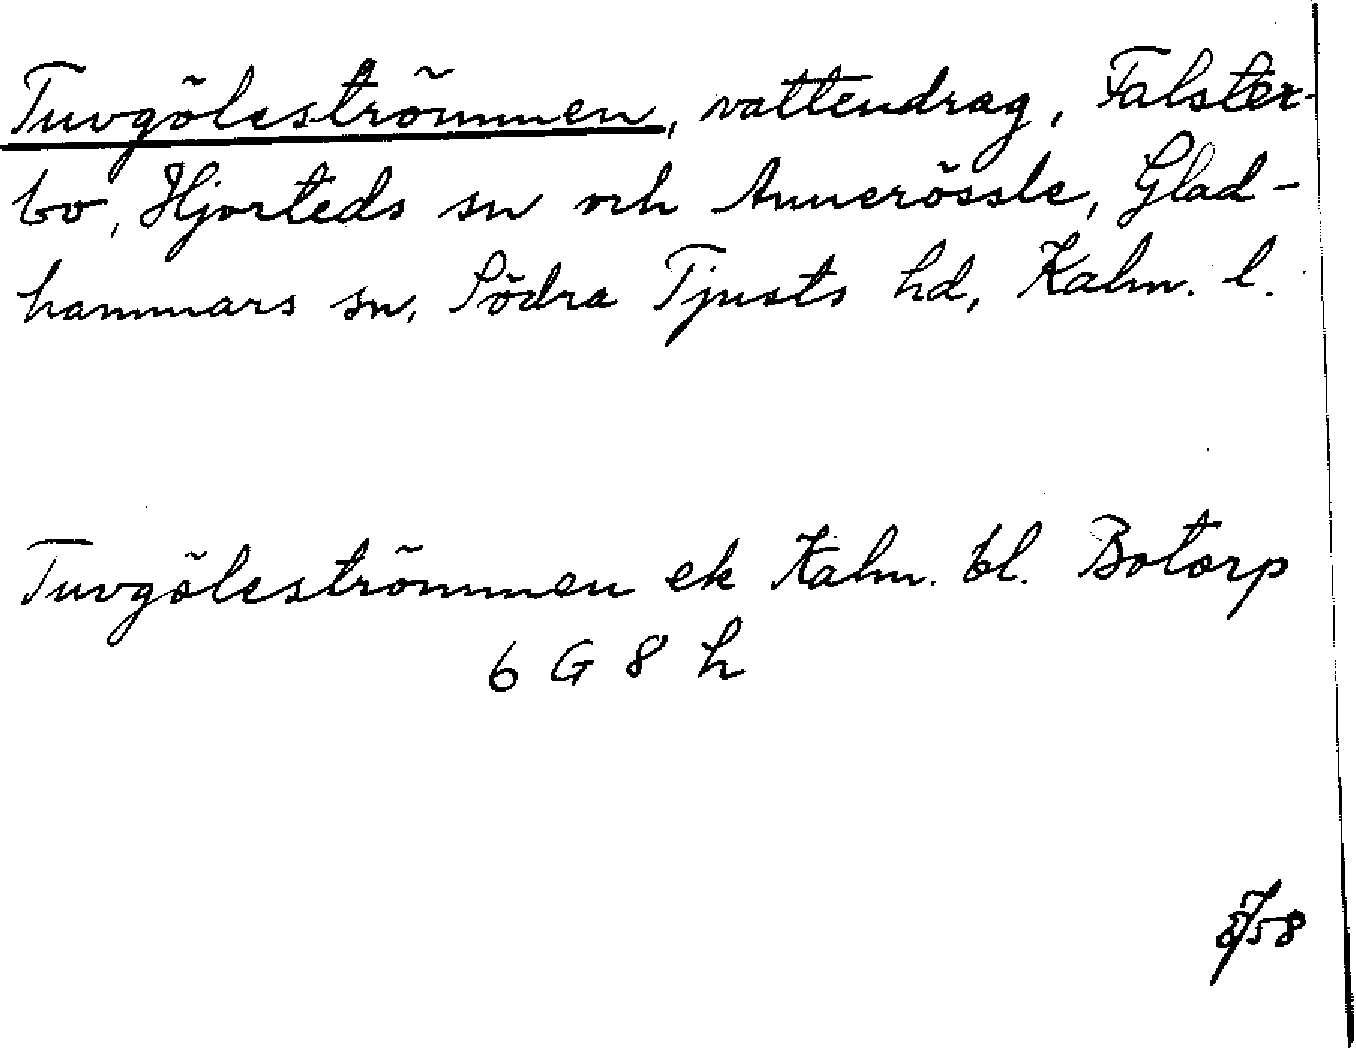 Tuvgöleströmmen, vattendrag, Falster-
bo, Hjorteds sn och Annerössle, Glad-
hammars sn, Södra Tjusts hd, Kalm. l.
Tuvgöleströmmen ek Kalm. bl. Botorp
6 G 8 h